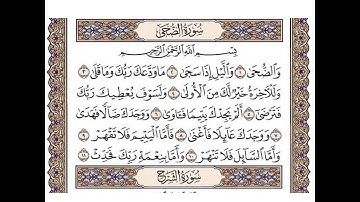 سُورَةُ الضُّحَى
بِسْمِ اللَّهِ الرَّحْمَٰنِ الرَّحِيمِ
وَالضُّحَى ١ وَاللَّيْلِ إِذَا سَجَى ٢ مَا وَدَّعَكَ رَبُّكَ وَمَا قَلَى ٣
وَلَلْآخِرَةُ خَيْرٌ لَّكَ مِنَ الْأُولَى ٤ وَلَسَوْفَ يُعْطِيكَ رَبُّكَ
فَتَرْضَى ٥ أَلَمْ يَجِدْكَ يَتِيمًا فَآوَى ٦ وَوَجَدَكَ ضَالًّا فَهَدَى
٧ وَوَجَدَكَ عَائِلًا فَأَغْنَى ٨ فَأَمَّا الْيَتِيمَ فَلَا تَقْهَرْ
٩ وَأَمَّا السَّائِلَ فَلَا تَنْهَرْ ١٠ وَأَمَّا بِنِعْمَةِ رَبِّكَ فَحَدِّثْ ١١
سُورَةُ الشَّرْحِ